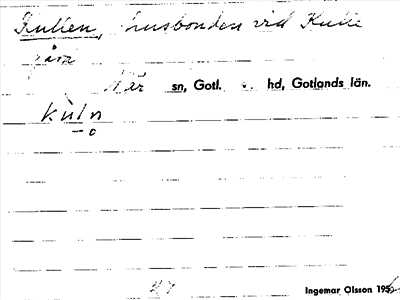 Kulien, husbonden vid Kulie
gård
När sn, Gotl. s. hd, Gotlands län.
Ingemar Olsson 195